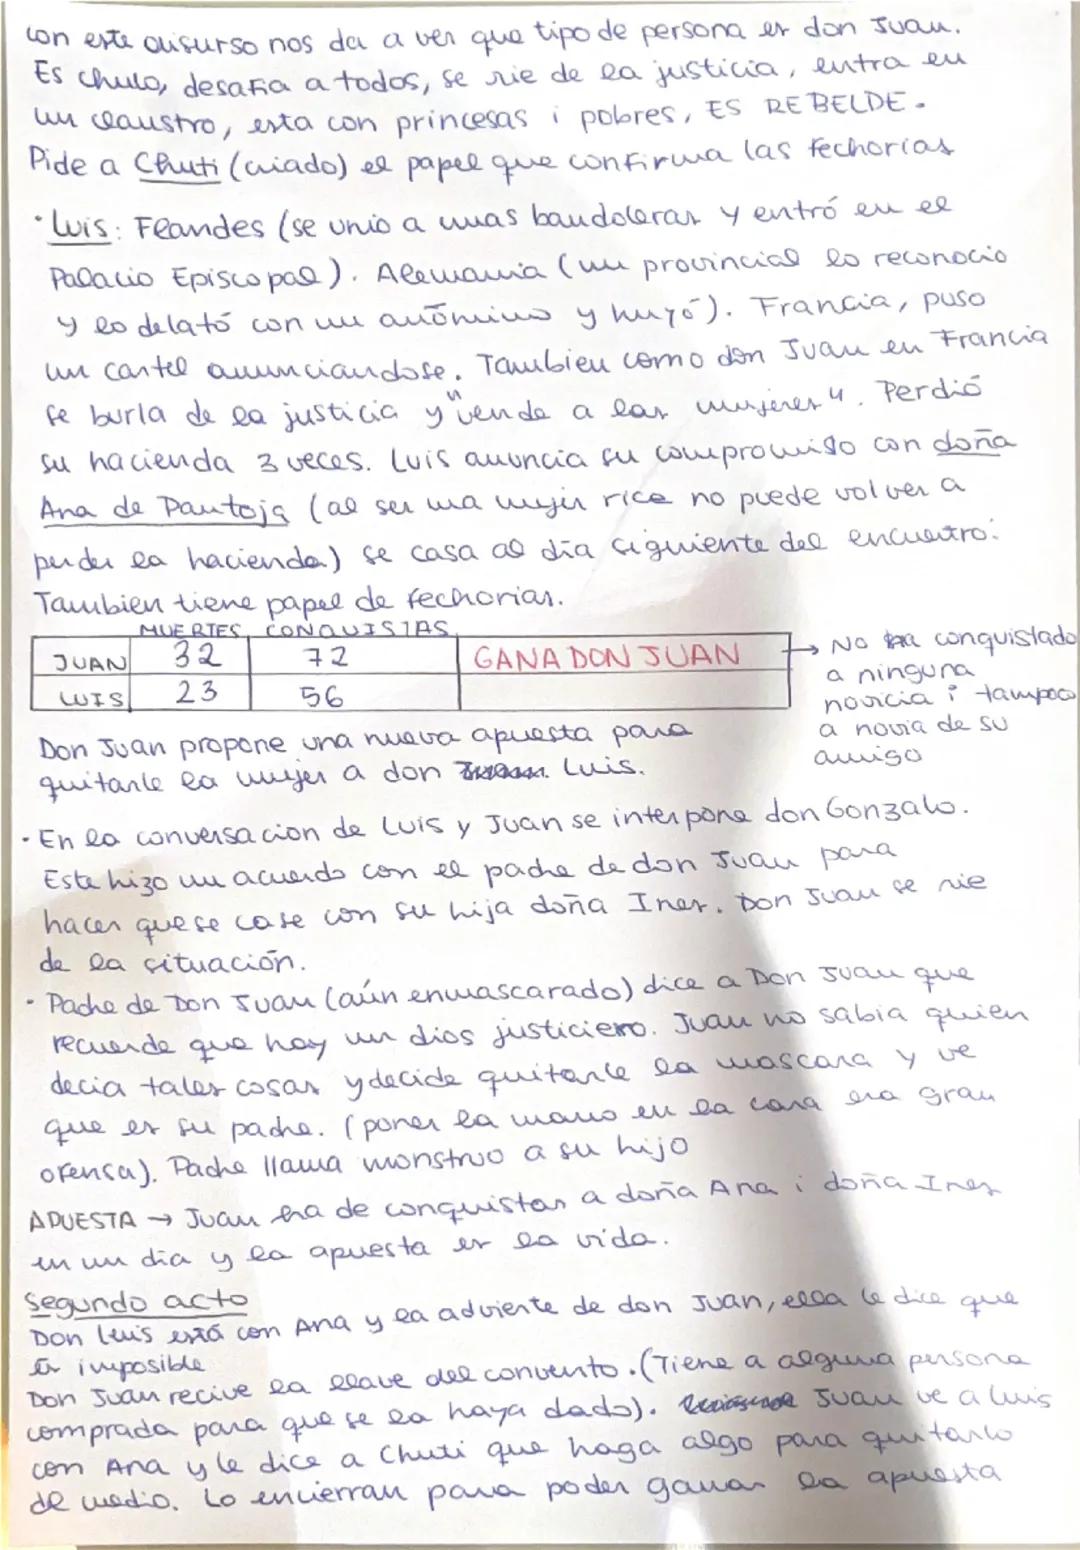 con este disurso nos da a ver que tipo de persona es don Juan.
Es chulo, desafia a todos, se rie de la justicia, entra en
un claustro, esta con princesas i pobres, ES REBELDE.
Pide a Chuti (criado) el papel que confirma las fechorías
· Luis: Flandes (se unio a unas bandoleras y entró en el
Palacio Episcopal). Alemania (un provincial lo reconocio
y lo delató con un anómino y huyó). Francia, puso
un cartel anunciandose. Tambien como don Juan en Francia
se burla de la justicia y "vende a las mujeres". Perdió
su hacienda 3 veces. Luis anuncia su compromiso con doña
Ana de Pantoja (al ser una mujer rica no puede volver a
perder la hacienda) se casa al día siguiente del encuentro.
Tambien tiene papel de fechorias.
MUERTES CONQUISTAS
JUAN 32 72 GANA DON JUAN → No ha conquistado
a ninguna
LUIS 23 56 novicia i tampoco
a novia de su
amigo
Don Juan propone una nueva apuesta para
quitarle la mujer a don Luis.
· En la conversacion de Luis y Juan se interpone don Gonzalo.
Este hizo un acuerdo con el padre de don Juan para
hacer que se case con su hija doña Ines. Don Juan se rie
de la situación.
· Padre de Don Juan (aún enmascarado) dice a Don Juan que
recuerde que hay un dios justiciero. Juan no sabia quien
decia tales cosas y decide quitarle la mascara y ve
que es su padre. (poner la mano en la cara era gran
ofensa). Padre llama monstruo a su hijo
APUESTA → Juan ha de conquistar a doña Ana i doña Ines
en un dia y la apuesta es la vida.
Segundo acto
Don Luis está con Ana y la advierte de don Juan, ella le dice que
es imposible
Don Juan recive la llave del convento. (Tiene a alguna persona
comprada para que se la haya dado). Juan ve a Luis
con Ana y le dice a Chuti que haga algo para quitarlo
de medio. Lo encierran para poder ganar la apuesta